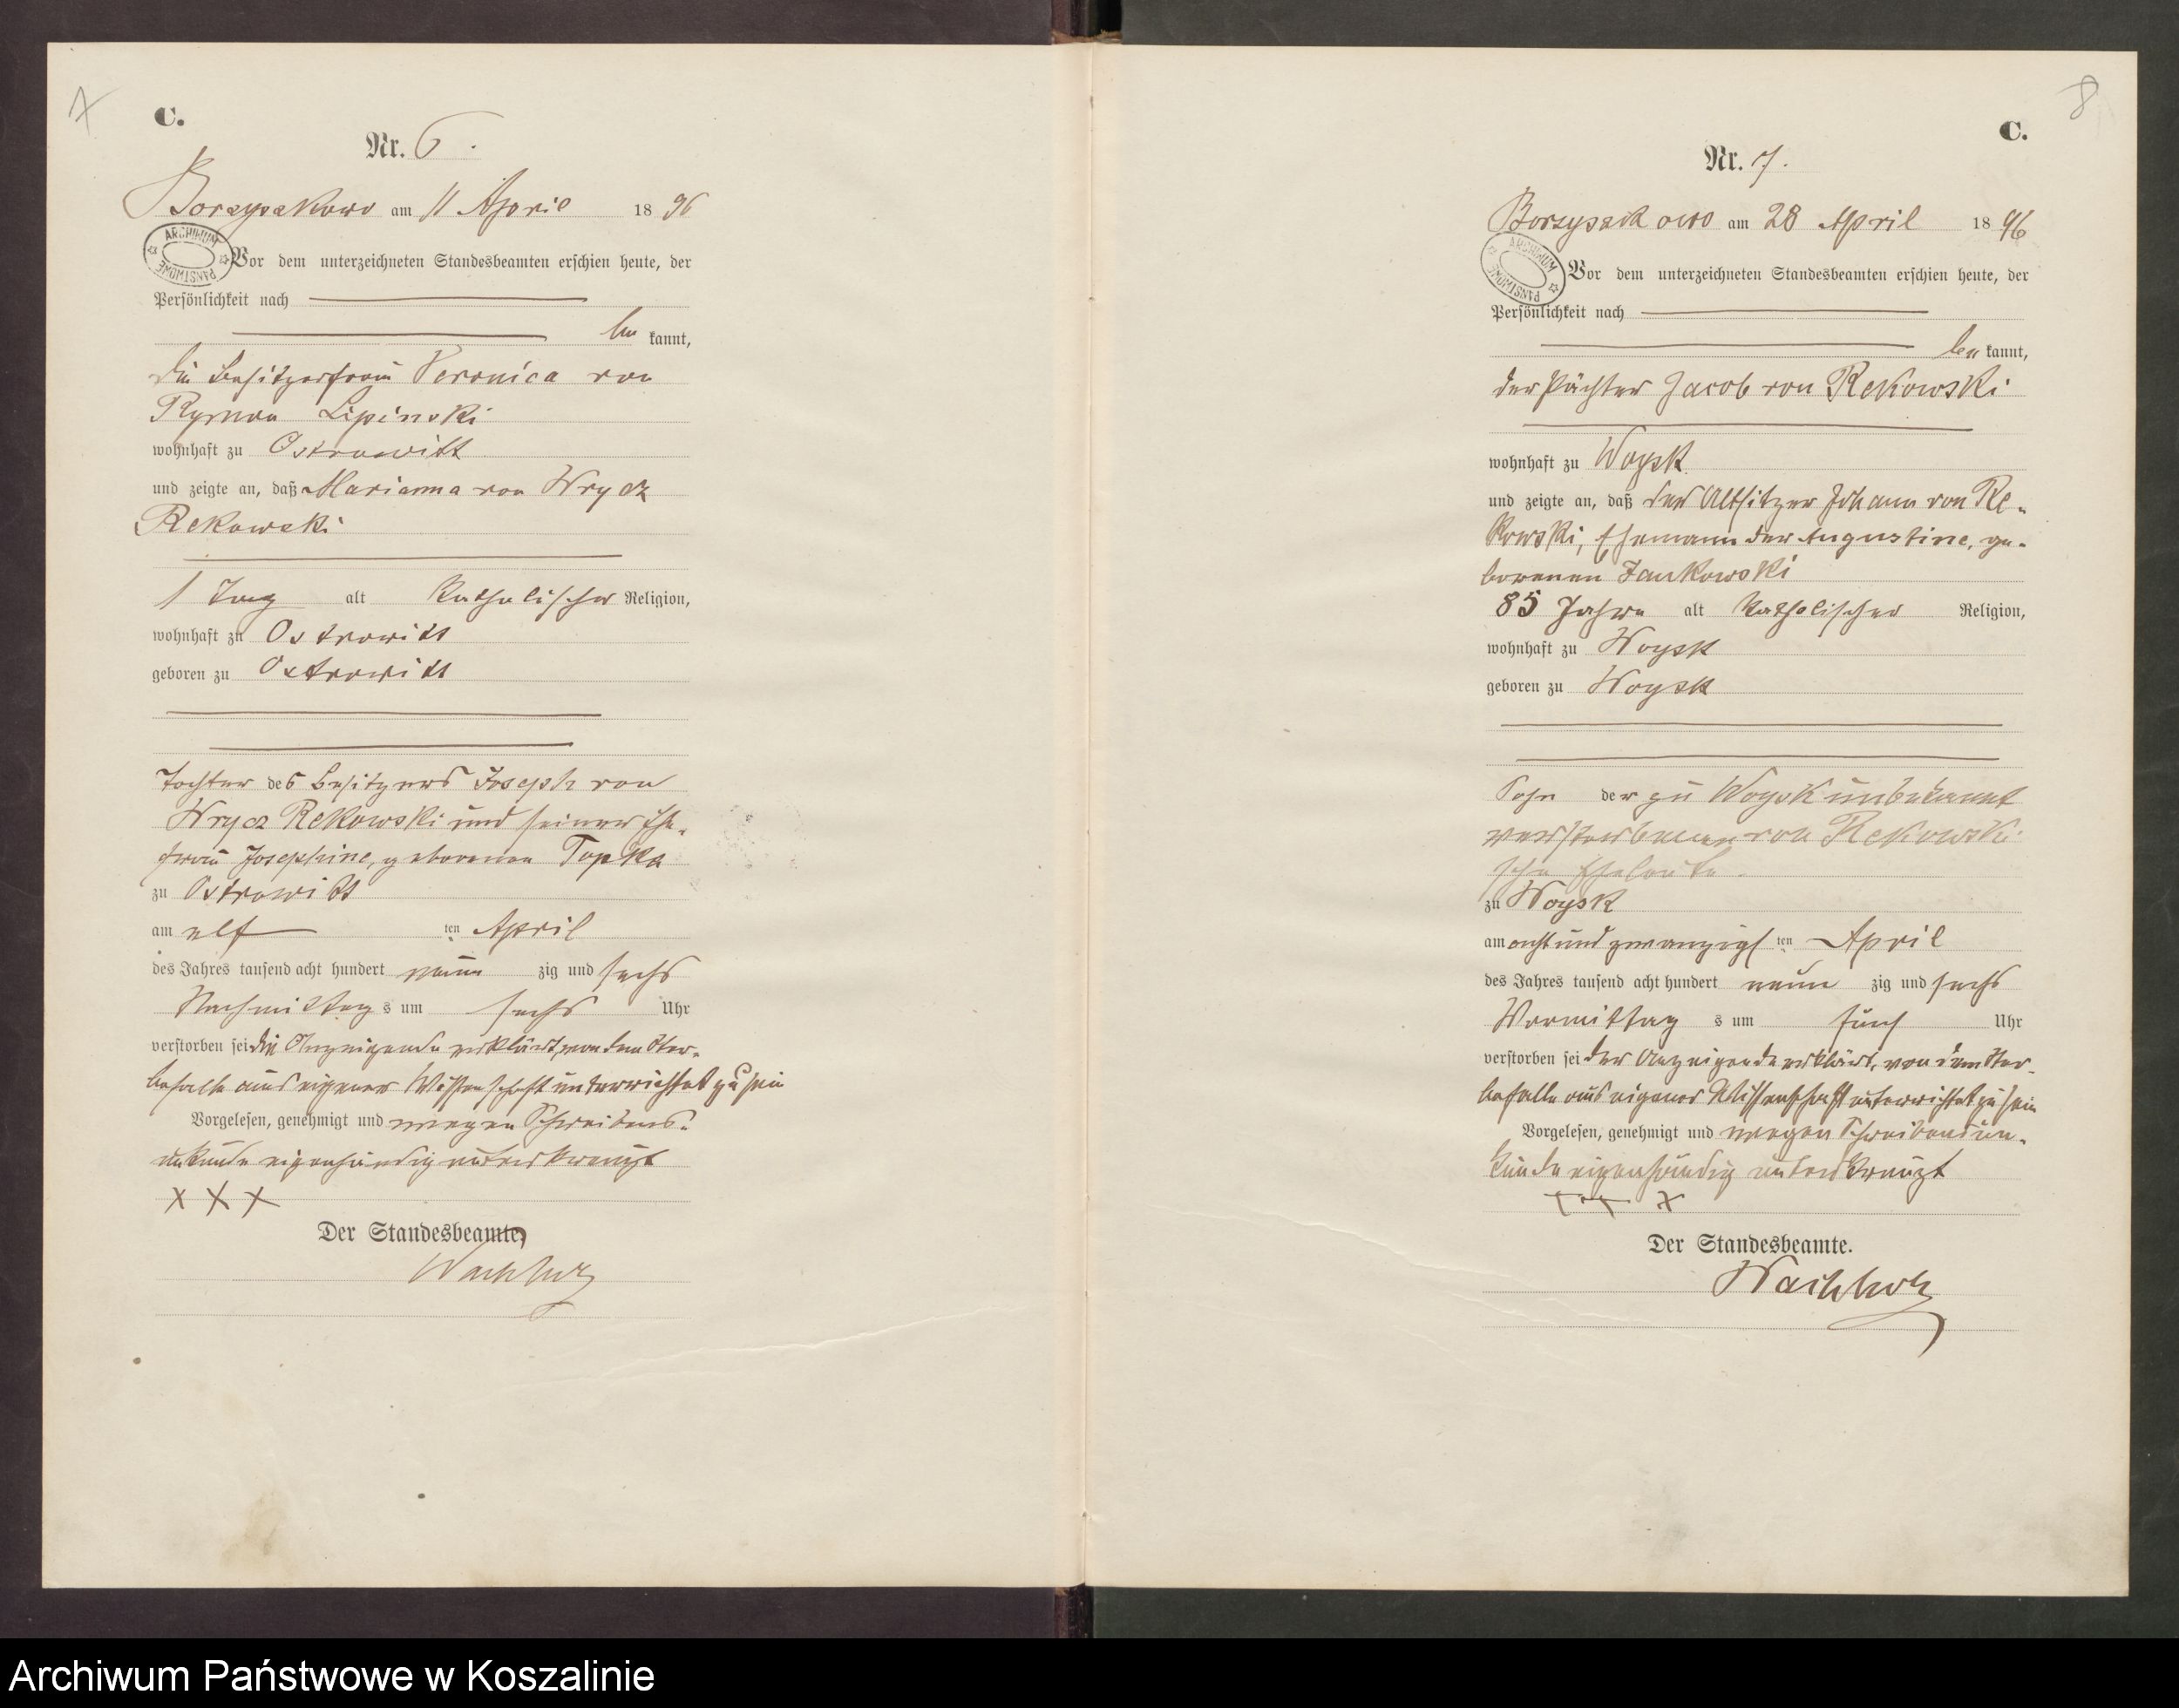 7
C.
Nr. 6.
Borzyszkowo am 11 April 1896
ARCHIWUM PAŃSTWOWE
Vor dem unterzeichneten Standesbeamten erschien heute, der
Persönlichkeit nach
bekannt,
die Besitzerfrau Veronica von
Rymon Lipinski
wohnhaft zu Ostrowitt
und zeigte an, daß Marianna von Wrycz
Rekowski
1 Tag alt katholischer Religion,
wohnhaft zu Ostrowitt
geboren zu Ostrowitt
Tochter des Besitzers Joseph von
Wrycz Rekowski und seiner Ehe-
frau Josephine, geborenen Topka
zu Ostrowitt
am elf ten April
des Jahres tausend acht hundert neun zig und sechs
Nachmittags um sechs Uhr
verstorben sei die Anzeigende erklärt, von dem Ster-
befalle aus eigener Wissenschaft unterrichtet zu sein
Vorgelesen, genehmigt und wegen Schreibens-
unkunde eigenhändig unterkreuzt
X X X
Der Standesbeamte.
Wachholz
8
C.
Nr. 7.
Borzyszkowo am 28 April 1896
ARCHIWUM PAŃSTWOWE
Vor dem unterzeichneten Standesbeamten erschien heute, der
Persönlichkeit nach
bekannt,
der Pächter Jacob von Rekowski
wohnhaft zu Woysk
und zeigte an, daß der Altsitzer Johann von Re-
kowski, Ehemann der Augustine, ge-
borenen Jankowski
85 Jahre alt katholischer Religion,
wohnhaft zu Woysk
geboren zu Woysk
Sohn der zu Woysk unbekannt
verstorbenen von Rekowski-
schen Eheleute.
zu Woysk
am achtundzwanzigsten April
des Jahres tausend acht hundert neun zig und sechs
Vormittags um fünf Uhr
verstorben sei der Anzeigende erklärt, von dem Ster-
befalle aus eigener Wissenschaft unterrichtet zu sein
Vorgelesen, genehmigt und wegen Schreibensun-
kunde eigenhändig unterkreuzt
X X X
Der Standesbeamte.
Wachholz
Archiwum Państwowe w Koszalinie